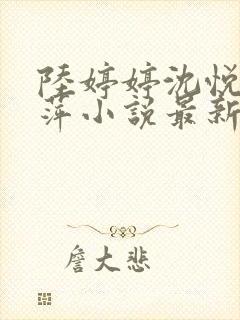 陸婷婷沈悦
萍小説最新
詹大悲